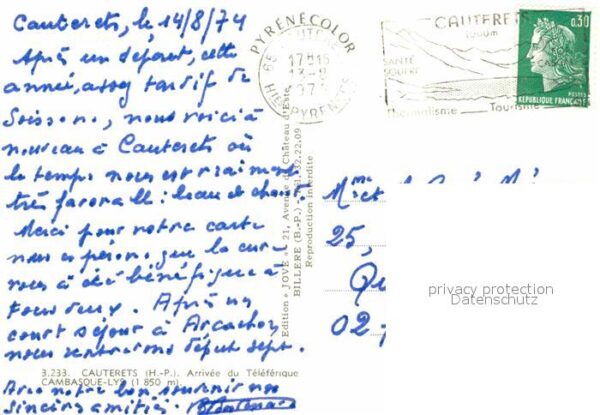 Cauterets, le 14/8/74
Après un départ, cette
année, assez tardif de
Soissons, nous voici à
nouveau à Cauterets où
le temps nous est vraiment
très favorable: beau et chaud.
Merci pour votre carte
nous espérons que la cure
vous a été bénéfique à
tous deux. Après un
court séjour à Arcachon
nous rentrerons début sept.
Avec notre bon souvenir nos
sincères amitiés.
3.233. CAUTERETS (H.-P.). Arrivée du Téléférique
CAMBASQUE-LYS (1 850 m).
Edition « JOVE » 21, Avenue du Château d'Este
BILLERE (B.-P.) - Tél. 32.22.09
Reproduction interdite
PYRENECOLOR
65 CAUTERETS
17H15
13-8
HTES PYRENEES
CAUTERETS
1000m
SANTÉ
SOUFRE
Thermalisme Tourisme
0,30
POSTES
REPUBLIQUE FRANÇAISE
Mme et
25,
Qu
02
privacy protection
Datenschutz